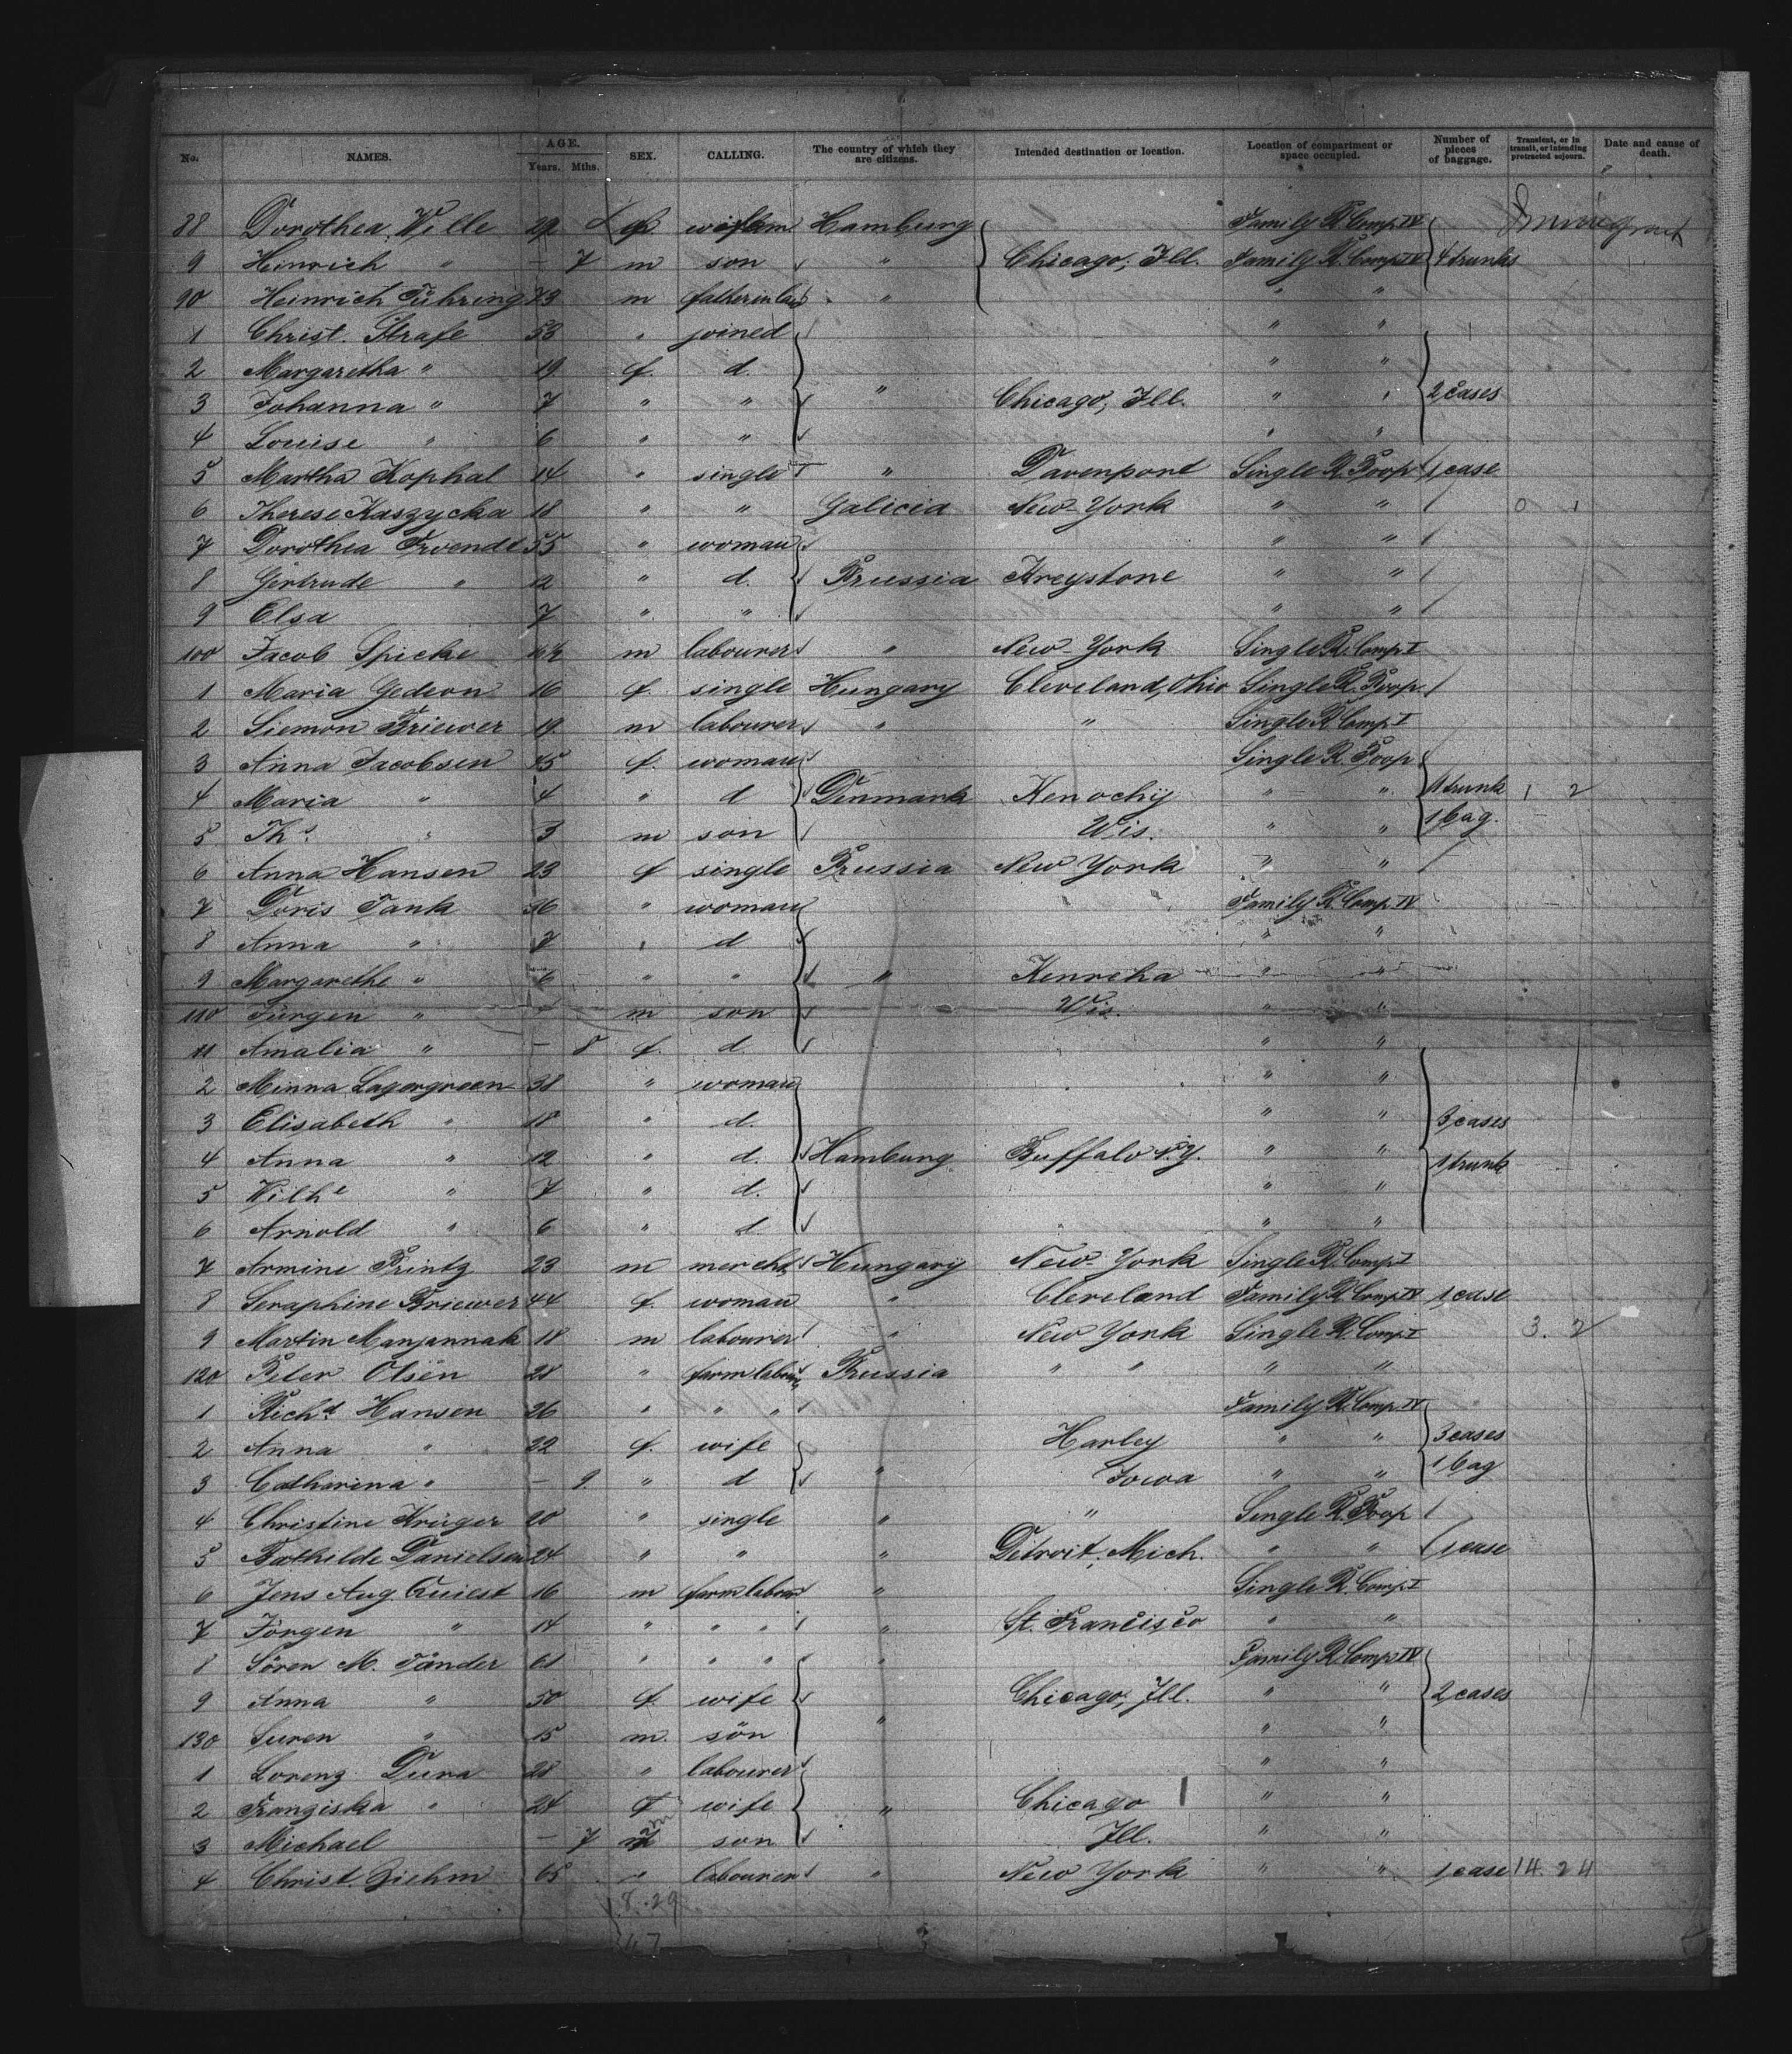 No. NAMES. AGE. Years. Mths. SEX. CALLING. The country of which they are citizens. Intended destination or location. Location of compartment or space occupied. Number of pieces of baggage. Transient, or in transit, or intending protracted sojourn. Date and cause of death.
88 Dorothea Wille 29 Hamburg Family R. Comp IV
9 Heinrich " — 7 m son " Chicago, Ill. Family R. Comp IV 4 trunks
90 Heinrich Führing 73 m father in law " " "
1 Christ. Strafe 53 " joined " "
2 Margaretha " 19 f. d. " "
3 Johanna " 7 " " " Chicago, Ill. " " 2 cases
4 Louise " 6 " " " "
5 Martha Kophal 14 " single " Davenport Single R. Poop 1 case
6 Therese Kaszycka 18 " " Galicia New-York " " / 0 1
7 Dorothea 55 " woman " " /
8 Gertrude " 12 " d. Prussia Kreystone " " /
9 Elsa 7 " " " " /
100 Jacob Spicke m labourer " New-York Single R. Comp. I
1 Maria Gedeon 16 f. single Hungary Cleveland, Ohio Single R. Poop /
2 Siemon Briewer 19 m labourer " " Single R. Comp I
3 Anna Jacobsen 45 f. woman Single R. Poop
4 Maria " 4 " d Denmark Kenochy " " 1 trunk 1 2
5 Ths. " 3 m son Wis. " " 1 bag.
6 Anna Hansen 23 f single Prussia New York " " /
7 Doris Tank 36 " woman Family R. Comp IV
8 Anna " 7 " d " "
9 Margarethe " 6 " " " Kenreha " "
110 Jürgen " m son Wis. " "
11 Amalia " — 8 f. d. " "
2 Minna Lagergreen 38 " woman " "
3 Elisabeth " 18 " d. " " 3 cases
4 Anna " 12 " d. Hamburg Buffalo N.Y. " " 1 trunk
5 Wilhe " 7 " d. " "
6 Arnold " 6 " d. " "
7 Armine Printz 23 m mercht. Hungary New-York Single R. Comp I
8 Seraphine Briewer 44 f. woman " Cleveland Family R. Comp IV 1 case
9 Martin Manjannak 18 m labourer " New York Single R. Comp I 3. 2
120 Peter Olsen 28 " farm labour Prussia " " " "
1 Richd. Hansen 26 " " " Family R. Comp IV
2 Anna " 22 f. wife Harley " " 3 cases
3 Catharina " — 9. " d " Iowa " " 1 bag
4 Christine Krüger 20 " single " " Single R. Poop /
5 Bathilde Danielsen 24 " " " Detroit, Mich. " " 1 case
6 Jens Aug. Quiest 16 m farm labour " Single R. Comp I
7 Jörgen " 14 " " " " St. Francisco " "
8 Sören M. Tänder 61 " " " " Family R. Comp IV
9 Anna " 50 f. wife Chicago, Ill. " " 2 cases
130 Suren " 15 m. son " " "
1 Lorenz Dura 28 " labourer " "
2 Franziska " 24 f wife " Chicago " "
3 Michael — 7 m son Ill. " "
4 Christ. Ziehm 65 " labourer " New York " " 1 case 14. 24
8. 29
67